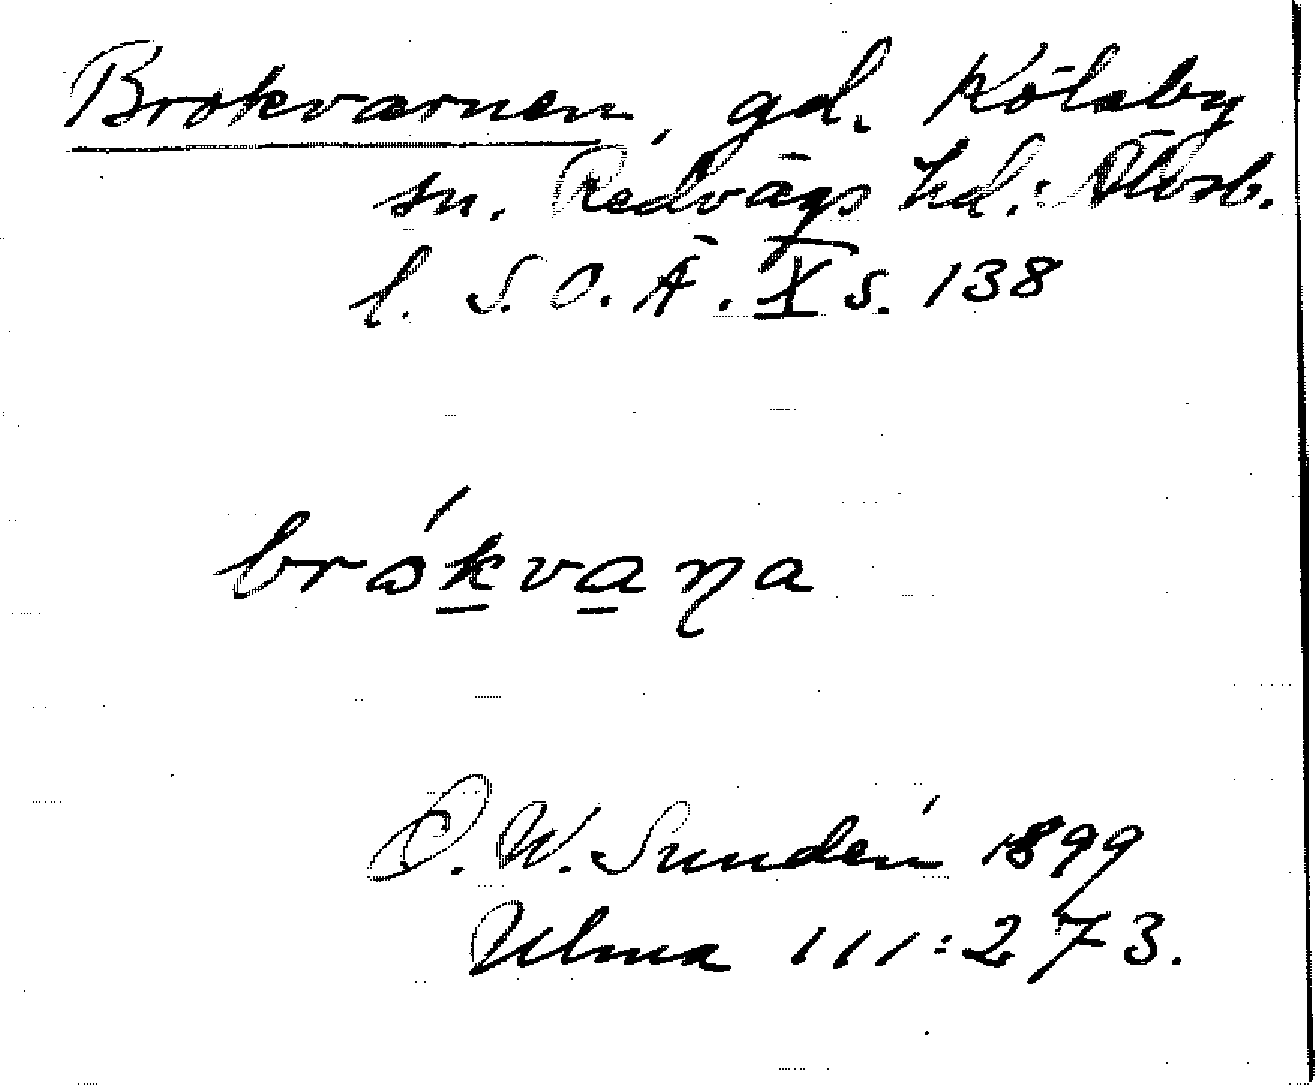 Brokvarnen, gd. Kölaby
sn. Redvägs hd. Älvsb.
l. S.O.Ä. X s. 138
brókvaɳa
D. W. Sundén 1899
Ulma 111:273.